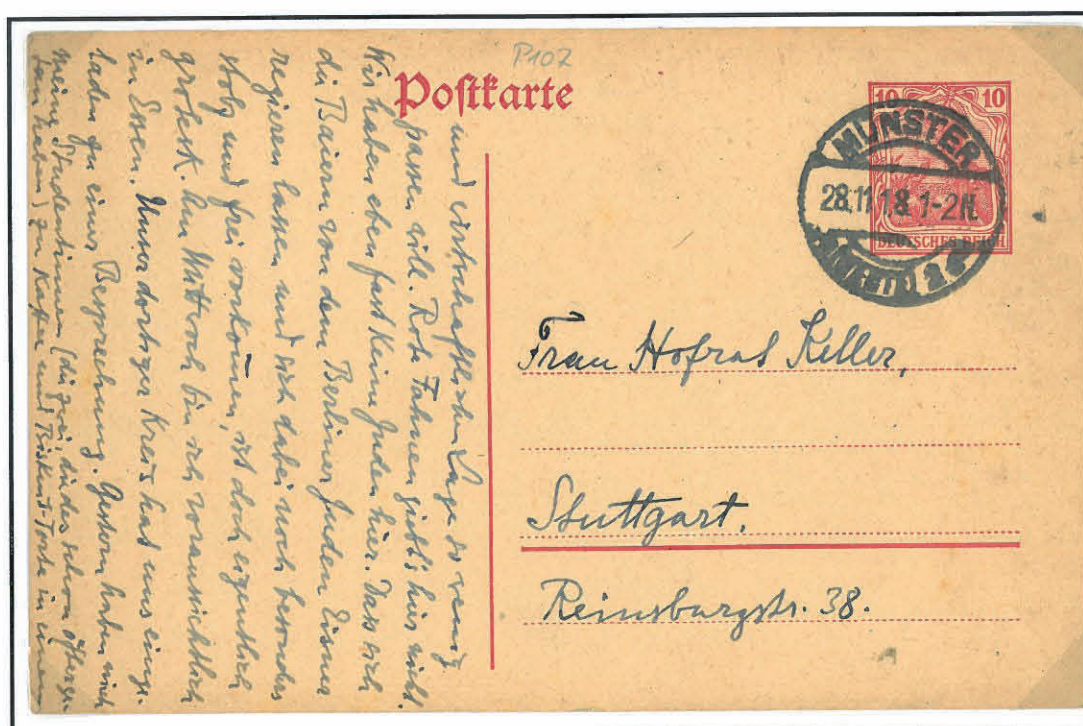 P107
Postkarte
10 10
DEUTSCHES REICH
MÜNSTER
28.11.18. 1-2 N.
(Westf) 2
Frau Hofrat Keller,
Stuttgart.
Reinsburgstr. 38.
und wirtschaftlichen Lage so wenig
passen will. Rote Fahnen giebt's hier nicht.
Wir haben eben fast keine Juden hier. Dass sich
die Baiern von dem Berliner Juden Eisner
regieren lassen und sich dabei noch besonders
stolz und frei vorkommen, ist doch eigentlich
grotesk. Am Mittwoch bin ich voraussichtlich
in Essen. Unser dortiger Kreis hat uns einge-
laden zu einer Besprechung. Gestern haben mich
meine Studentinnen (die zwei, die des schon öfteren
getan haben) zu Kaffee und Biskuit-Torte in einem